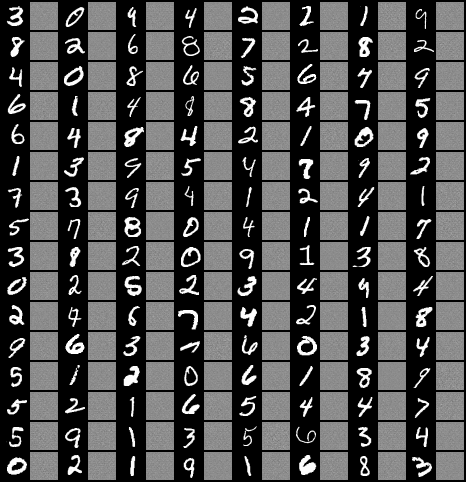 3 0 9 4 2 2 1 9
8 2 6 8 7 2 8 2
4 0 8 6 5 6 7 9
6 1 4 8 8 4 7 5
6 4 8 4 2 1 0 9
1 3 9 5 4 7 9 2
7 3 9 4 1 2 4 1
5 7 8 0 4 1 1 7
3 8 2 0 9 1 3 8
0 2 5 2 3 4 9 4
2 4 6 7 4 2 1 8
9 6 3 7 6 0 3 4
5 1 2 0 6 1 8 9
5 2 1 6 5 4 4 7
5 9 1 3 5 6 3 4
0 2 1 9 1 6 8 3